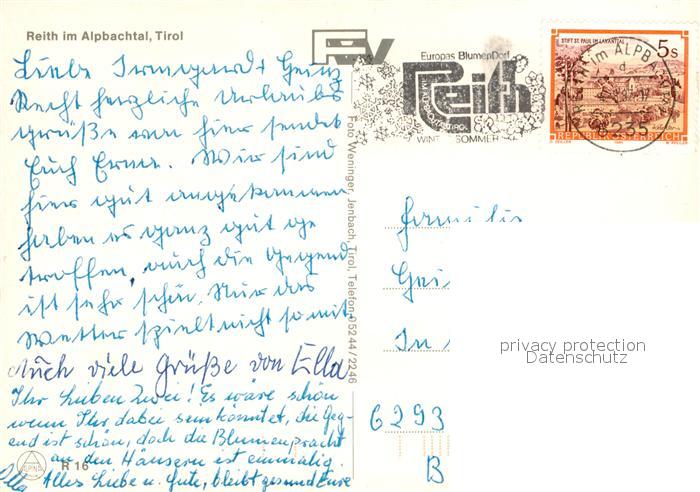 Reith im Alpbachtal, Tirol
Liebe Irmgard + Heinz
Recht herzliche Urlaubs
grüße von hier sendet
Euch Erna. Wir sind
hier gut angekommen
haben es ganz gut ge
troffen, auch die Gegend
ist sehr schön. Nur das
Wetter spielt nicht so mit.
Auch viele Grüße von Ella
Ihr lieben Zwei! Es wäre schön
wenn Ihr dabei sein könntet, die Geg-
end ist schön, doch die Blumenpracht
an den Häusern ist einmalig.
Alles Liebe u. Gute, bleibt gesund Eure
R 16
ALPINA
Foto Weninger, Jenbach, Tirol, Telefon 05244/2246
Europas BlumenDorf
Reith
IM ALPBACHTAL/TIROL
WINTER SOMMER
STIFT ST. PAUL IM LAVANTTAL
5s
REPUBLIK ÖSTERREICH
REITH im ALPBACHTAL
6235
Familie
In
6293
B
privacy protection
Datenschutz